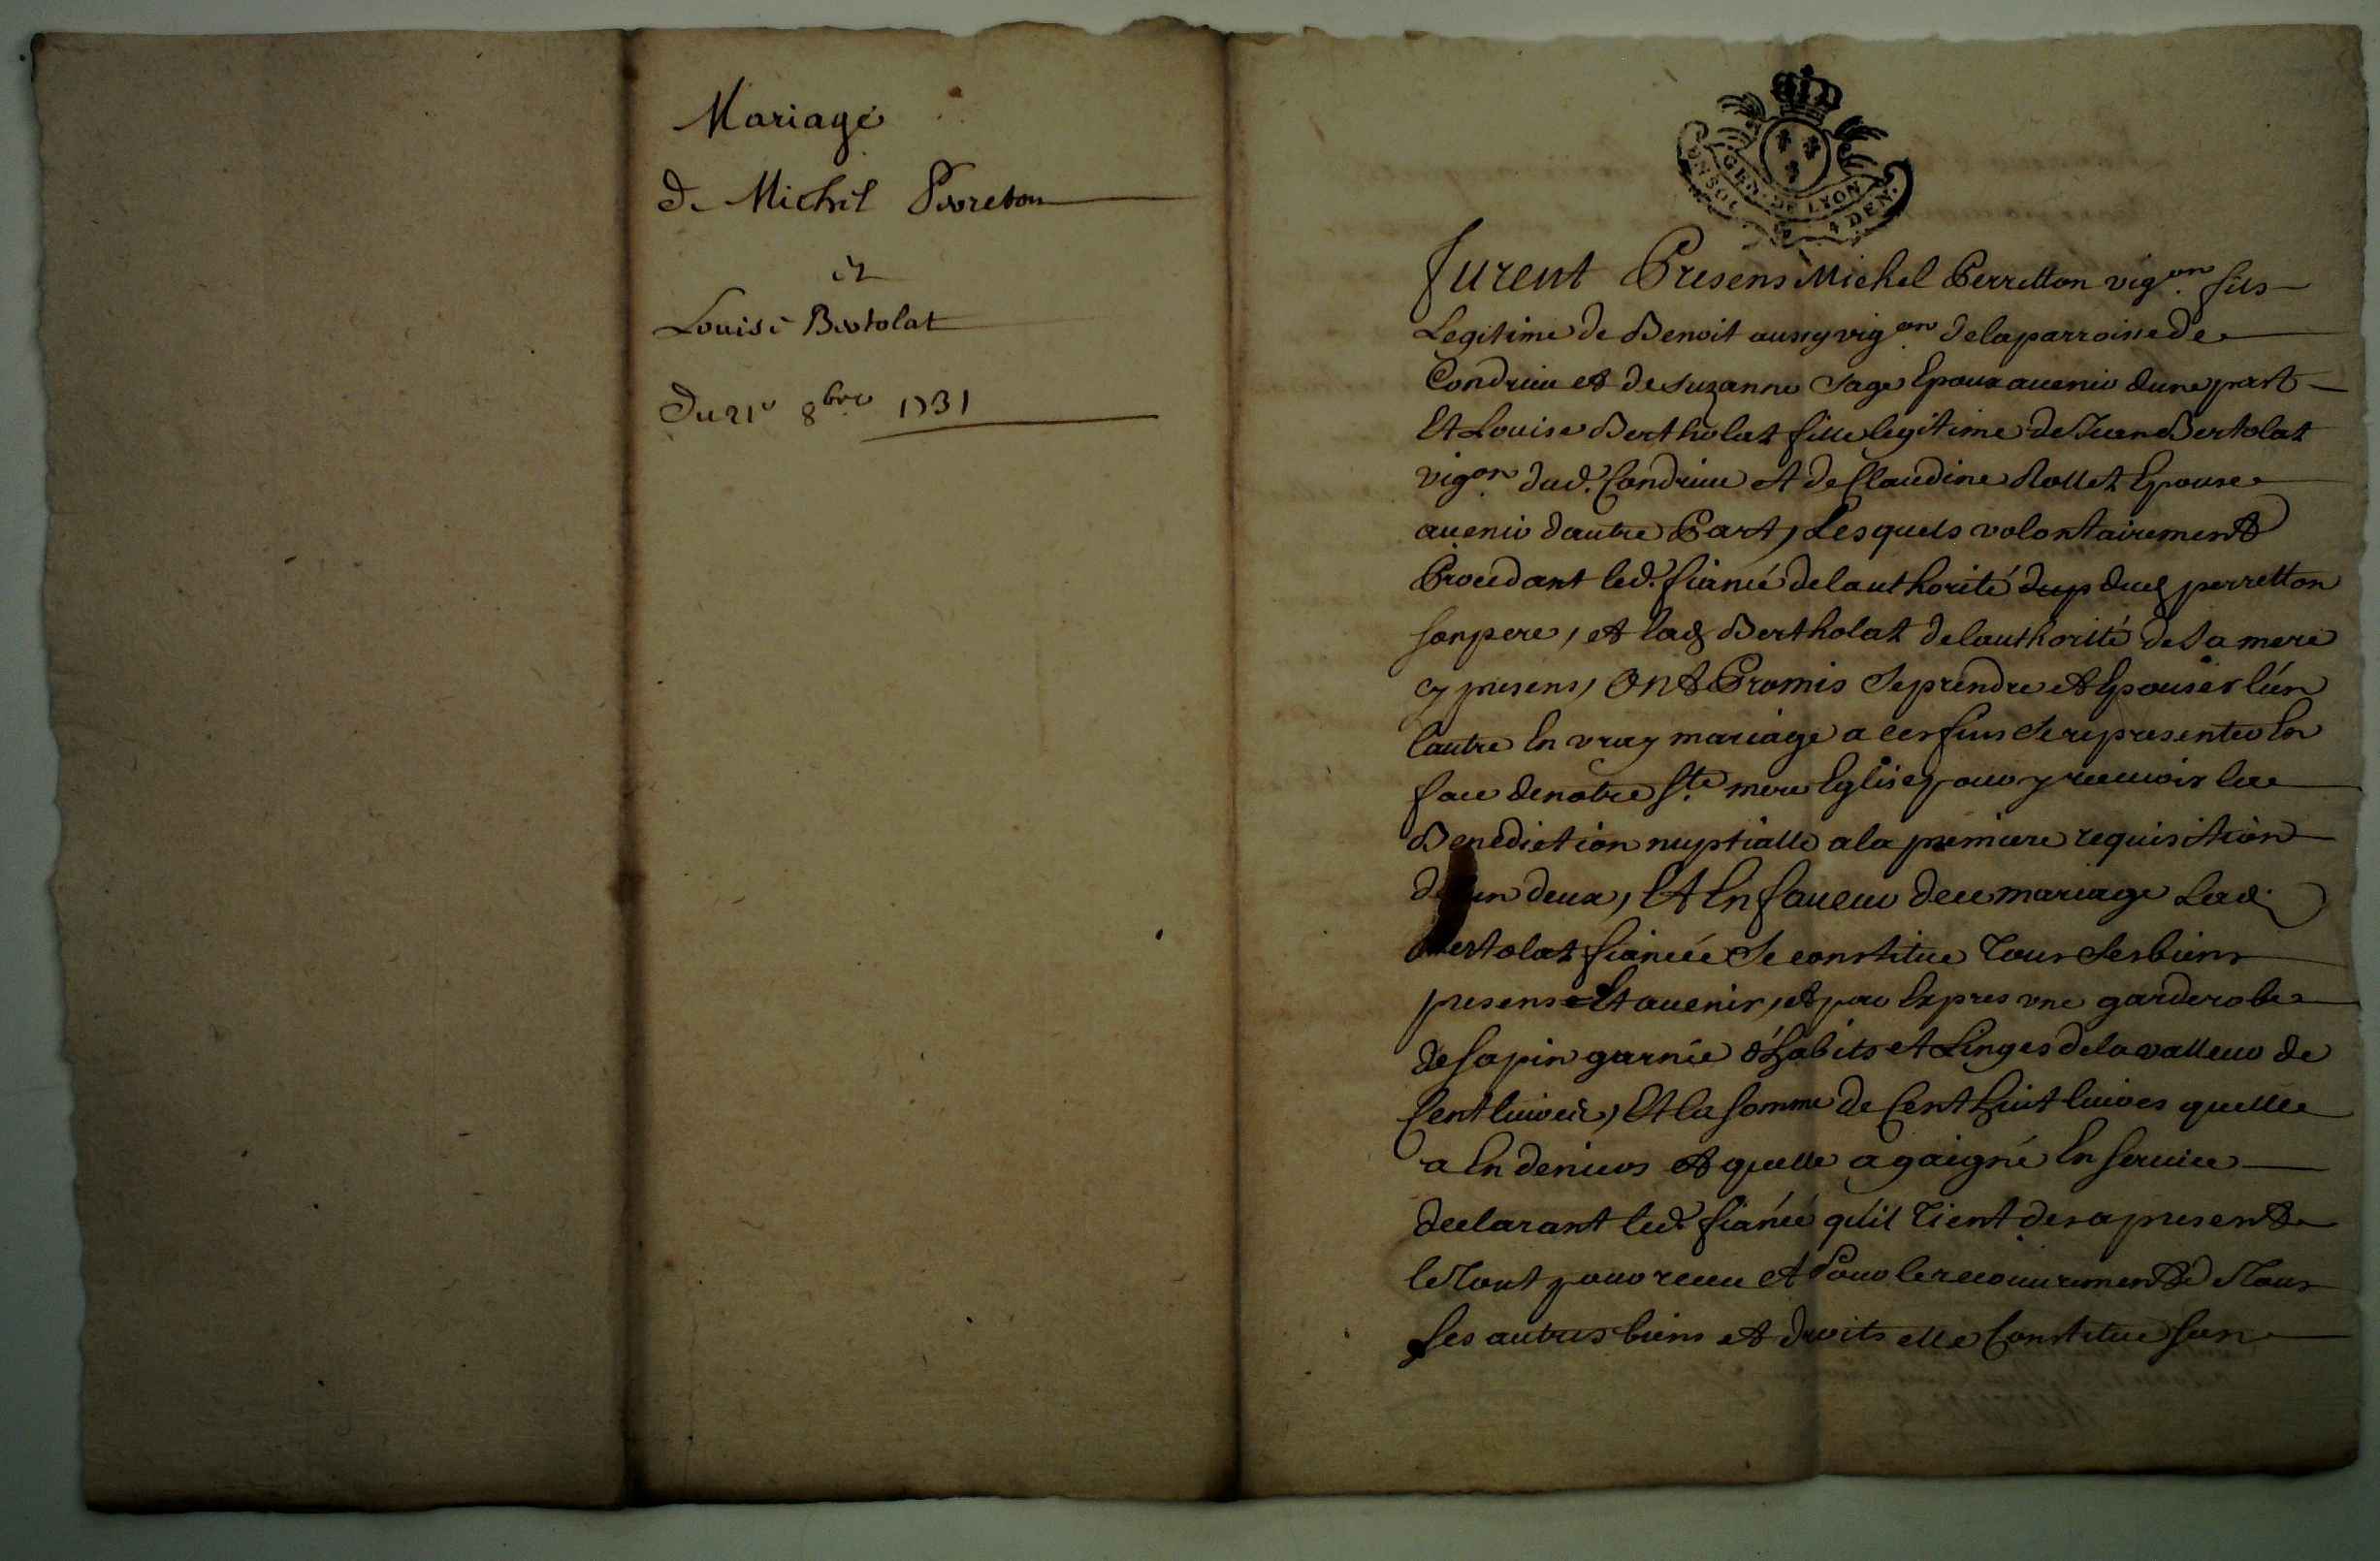 Mariage
De Michel Perreton
et
Louise Bertolat
Du 21e 8bre 1731
GEN. DE LYON
DEN.
furent Presens Michel Perretton vigon. fils
Legitime de Benoit aussy vigon. de la parroisse de
Condrieu et de Suzanne Sage Epoux auenir dune part
Et Louise Bertholat fille legitime de Jean Bertolat
vigon. dud. Condrieu et de Claudine Rollet Epouse
auenir dautre Part, Lesquels volontairement
Procedant led. fiancé de lauthorité dup dud perretton
son pere, et lad Bertholat de lauthorité de sa mere
cy presens, ont Promis se prendre et Epouser lún
lautre En vray mariage a ces fins se representer En
face de notre Ste. mere Eglise pour y receuoir la
Benediction nuptialle a la premiere requisition
de lun deux, Et En faueur de ce mariage Lad.
Bertolat fiancée se constitue tous ses biens
presens Et auenir, et par Expres vne garderobe
de sapin garnie d'habits et Linges de la valleur de
Cent liures, Et la somme de Cent huit liures quelle
a En deniers et quelle a gaigné En seruice
declarant led. fiancé qu'il tient des a present
le tout pour receu et Pour le recouurement de tous
ses autres biens et droits elle Constitue son